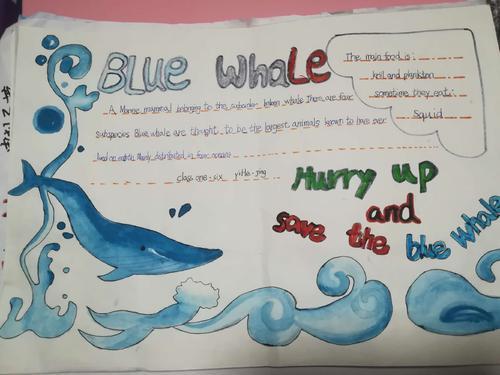 BLUE WhaLe
A Marine mammal belonging to the suborder baleen whale There are four
subspecies Blue whale are thought to be the largest animals known to have ever
lived on earth Mainly distributed in four oceans
class one-six
The main food is:
krill and plankton
sometime they eat:
squid
Hurry up
and
save the blue whale